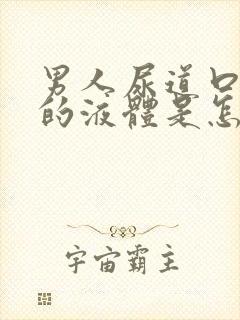 男人尿道口
的液體是怎
宇宙霸主